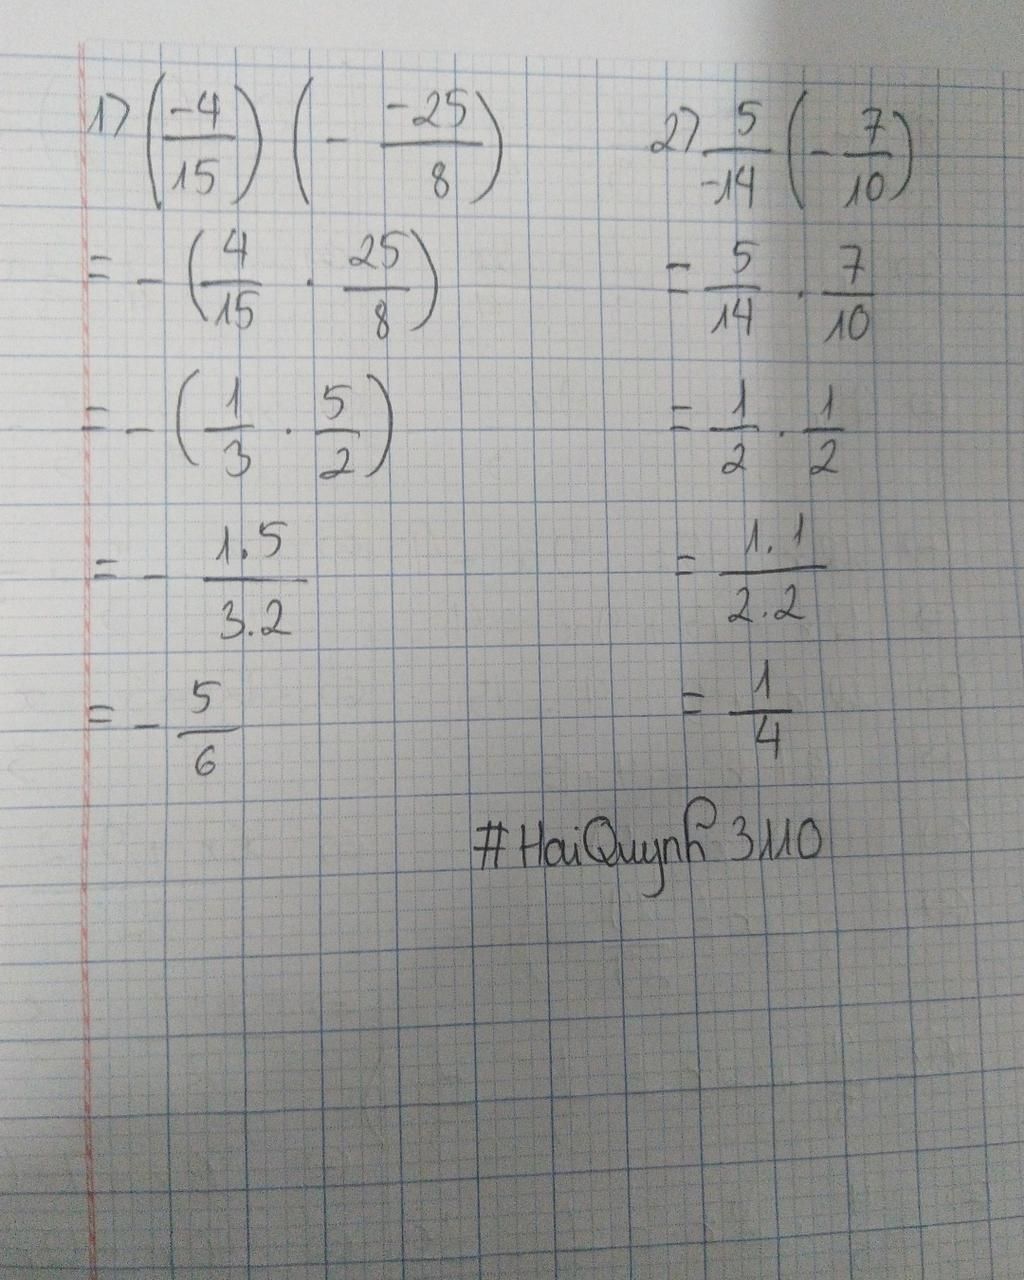 1) (-4/15) (- -25/8)
= - (4/15 . 25/8)
= - (1/3 . 5/2)
= - 1.5/3.2
= - 5/6
2) 5/-14 (- 7/10)
= 5/14 . 7/10
= 1/2 . 1/2
= 1.1/2.2
= 1/4
#HaiQuynh 3110